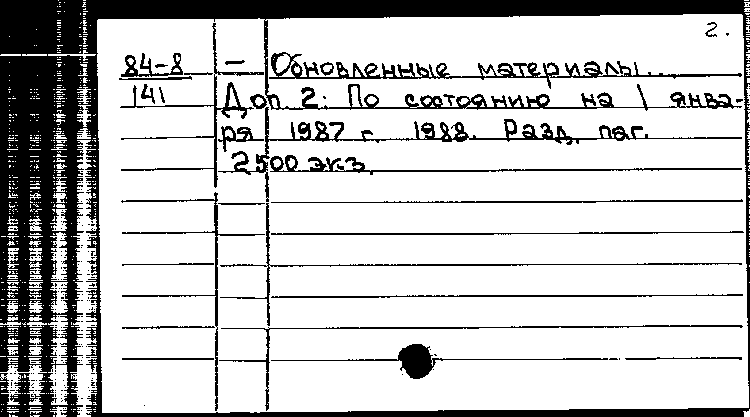 2.
84-8 — Обновленные материалы...
141 Доп. 2: По состоянию на 1 янва-
ря 1987 г. 1988. Разд. паг.
2500 экз.